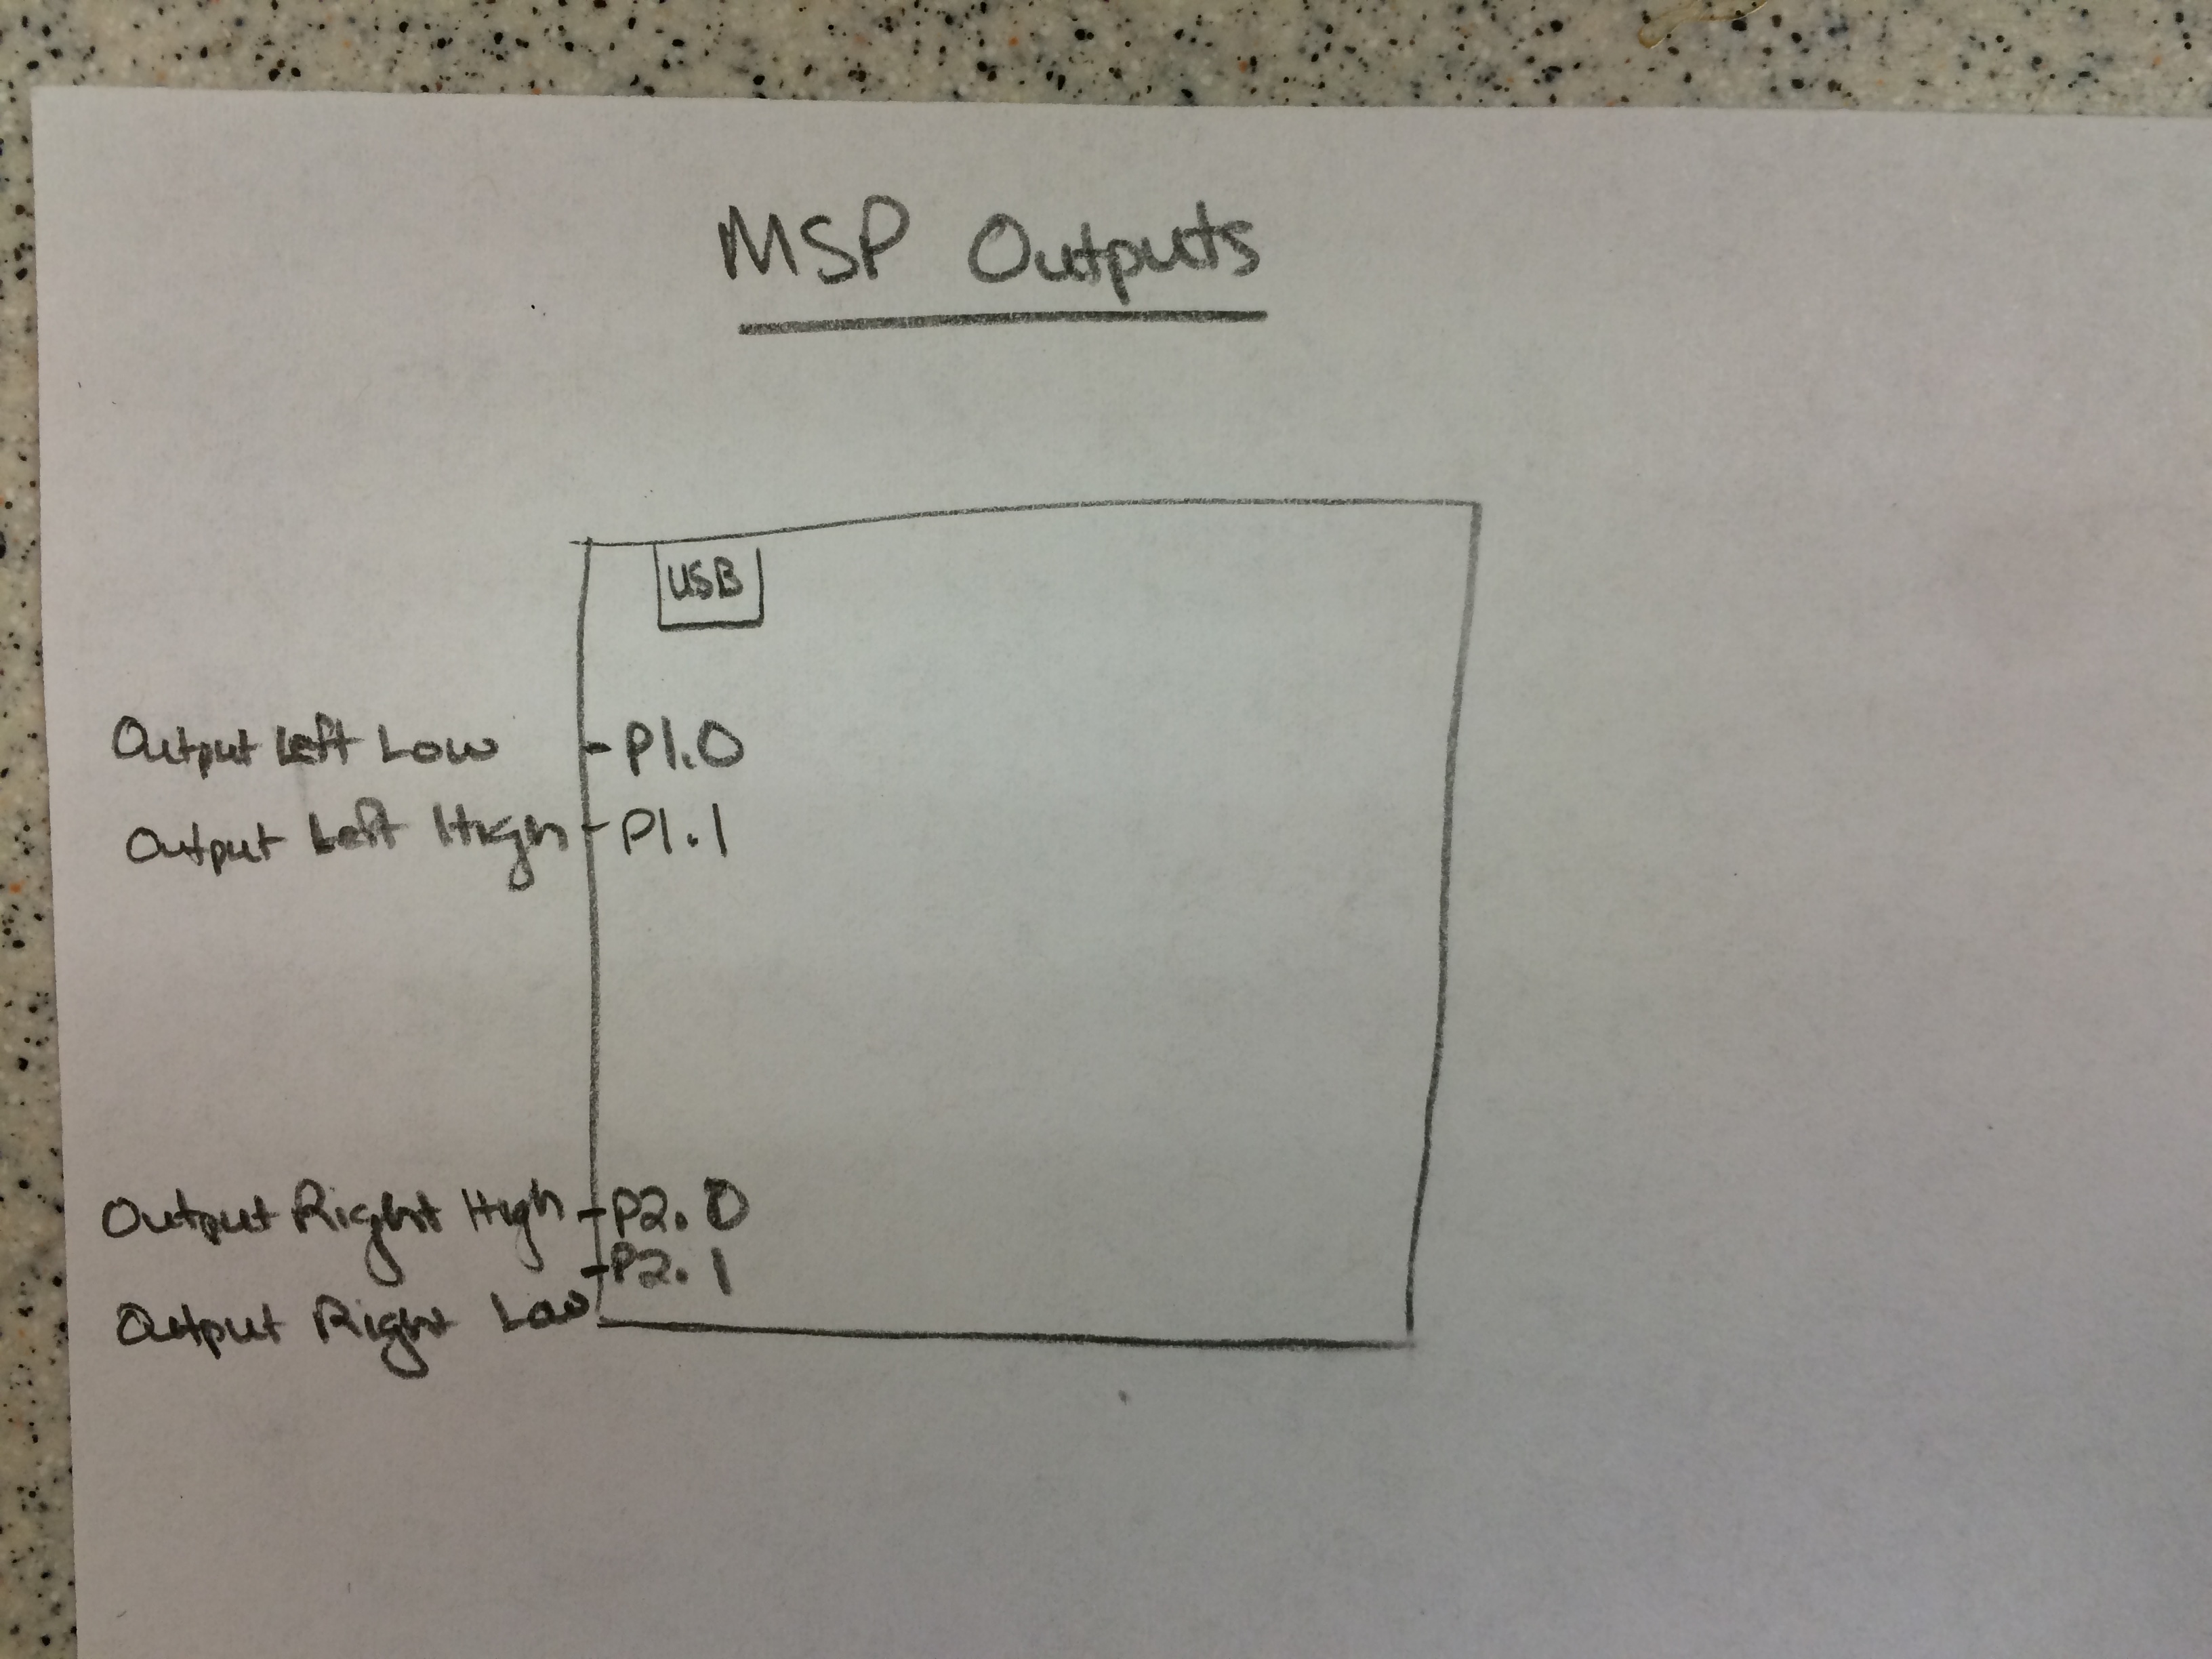 MSP Outputs
USB
Output Left Low - P1.0
Output Left High - P1.1
Output Right High - P2.0
Output Right Low - P2.1